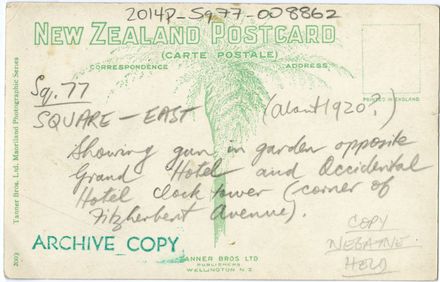 2014P-Sq77-008862
NEW ZEALAND POSTCARD
(CARTE POSTALE)
CORRESPONDENCE ADDRESS.
PRINTED IN ENGLAND
Sq. 77
SQUARE - EAST (about 1920?)
Showing gun in garden opposite
Grand Hotel and Occidental
Hotel clock tower (corner of
Fitzherbert Avenue).
COPY
NEGATIVE
HELD
ARCHIVE COPY
TANNER BROS LTD
PUBLISHERS
WELLINGTON N.Z
Tanner Bros. Ltd. Maoriland Photographic Series